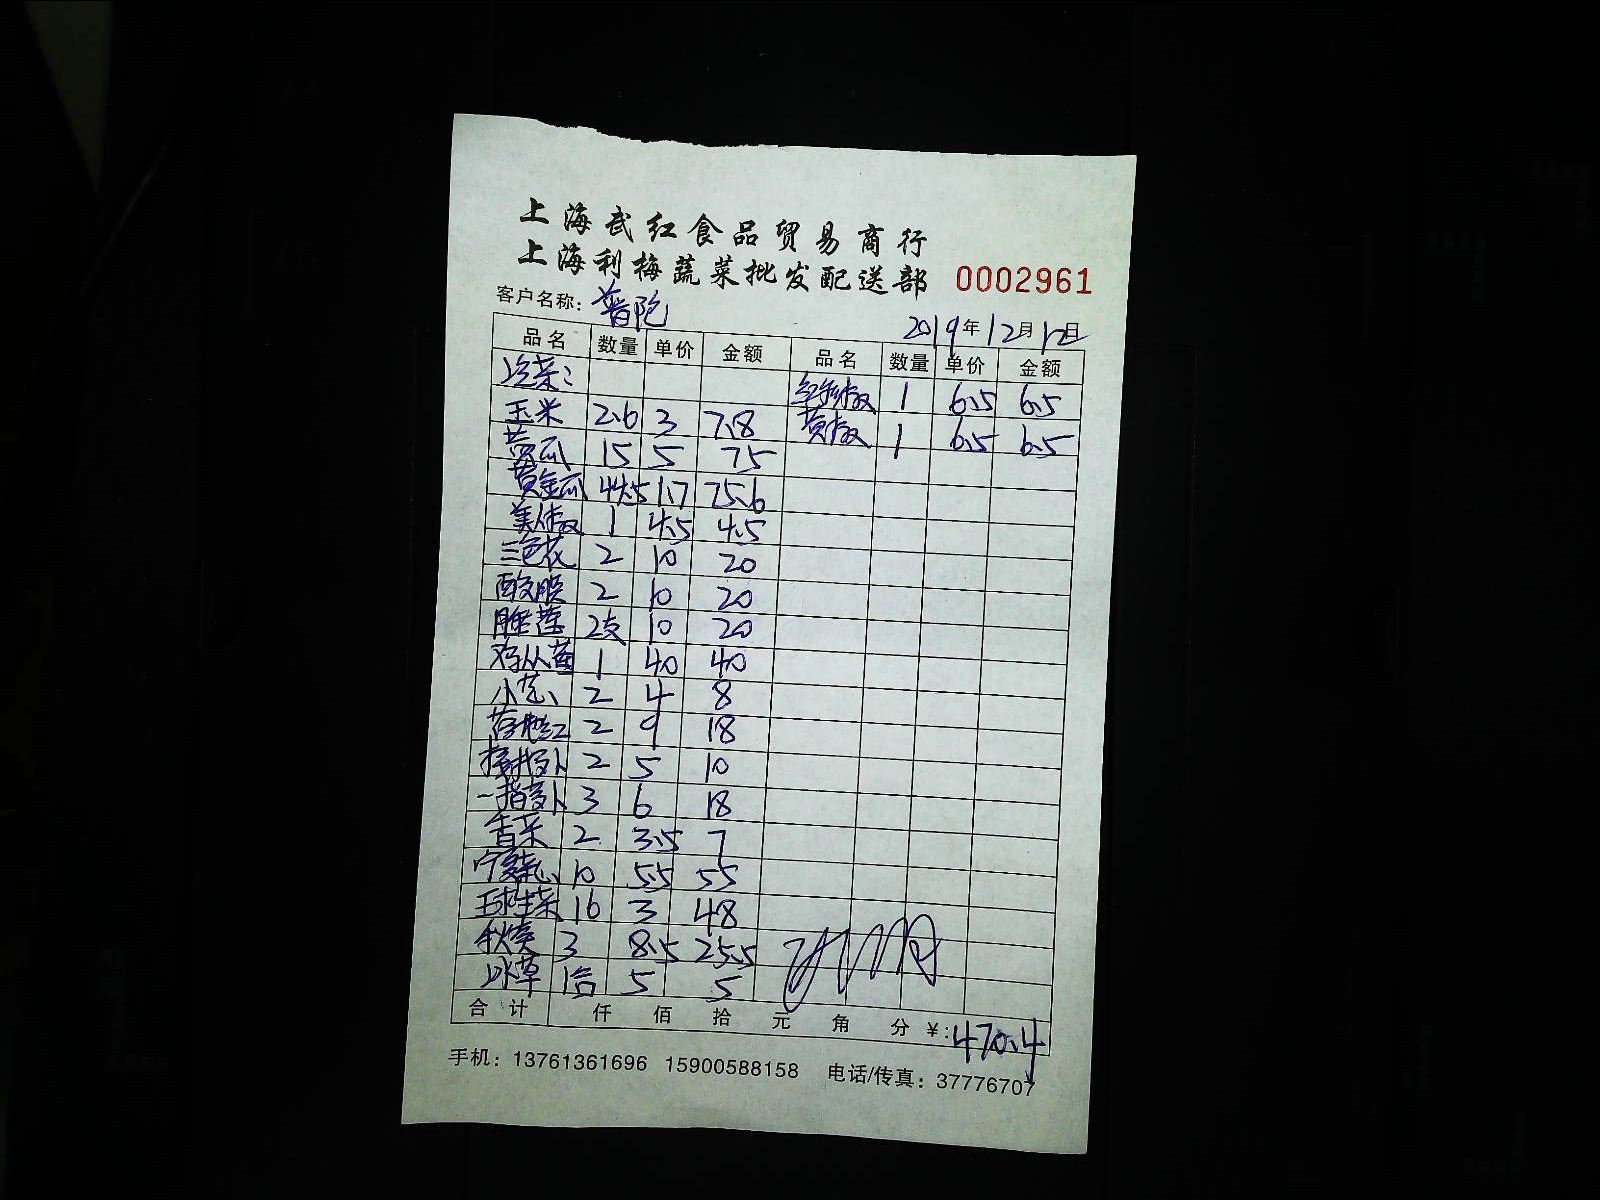 上海武红食品贸易商行
上海利梅蔬菜批发配送部 0002961
客户名称: 普陀 2019年12月12日
品名 数量 单价 金额 品名 数量 单价 金额
冷菜: 红彩椒 1 6.5 6.5
玉米 2.6 3 7.8 黄椒 1 6.5 6.5
黄瓜 15 5 75
黄金瓜 44.5 1.7 75.6
美人椒 1 4.5 4.5
三色花 2 10 20
酸膜 2 10 20
睡莲 2支 10 20
鸡从菌 1 40 40
小芯 2 4 8
2 9 18
樱桃萝卜 2 5 10
一指萝卜 3 6 18
香菜 2 3.5 7
10 5.5 55
球生菜 16 3 48
秋葵 3 8.5 25.5
冰草 1合 5 5
合计 仟 佰 拾 元 角 分 ¥: 470.4
手机: 13761361696 15900588158 电话/传真: 37776707